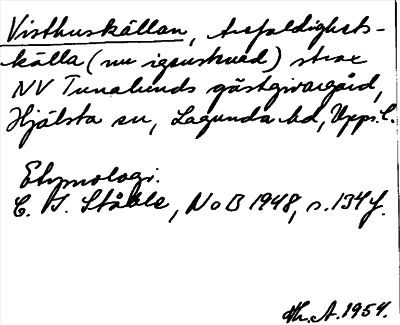 Visthuskällan, trefaldighets-
källa (nu igenstuvad) strax
NV Tunalunds gästgivaregård,
Hjälsta sn, Lagunda hd, Upps. l.
Etymologi.
C. I. Ståhle, NoB 1948, s. 134 f.
Th. A. 1954.